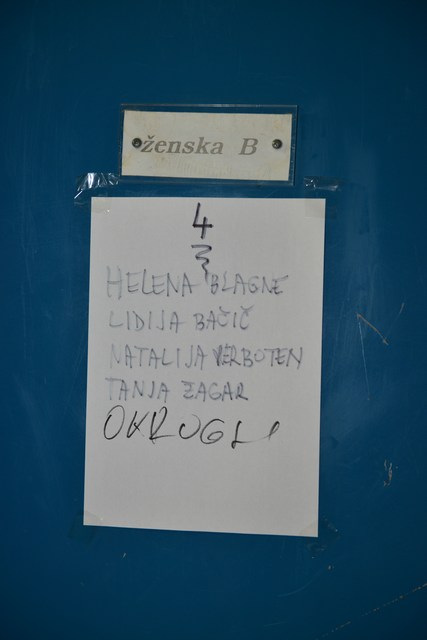 ženska B
4
HELENA BLAGNE
LIDIJA BAČIČ
NATALIJA VERBOTEN
TANJA ŽAGAR
OKROGLI